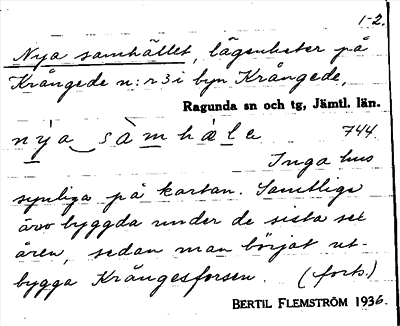 1-2.
Nya samhället, lägenheter på
Krångede n:r 3 i byn Krångede,
Ragunda sn och tg, Jämtl. län.
nya sàmhále 744
Inga hus
synliga på kartan. Samtliga
äro byggda under de sista sex
åren, sedan man börjat ut-
bygga Krångesforsen. (forts.)
BERTIL FLEMSTRÖM 1936.